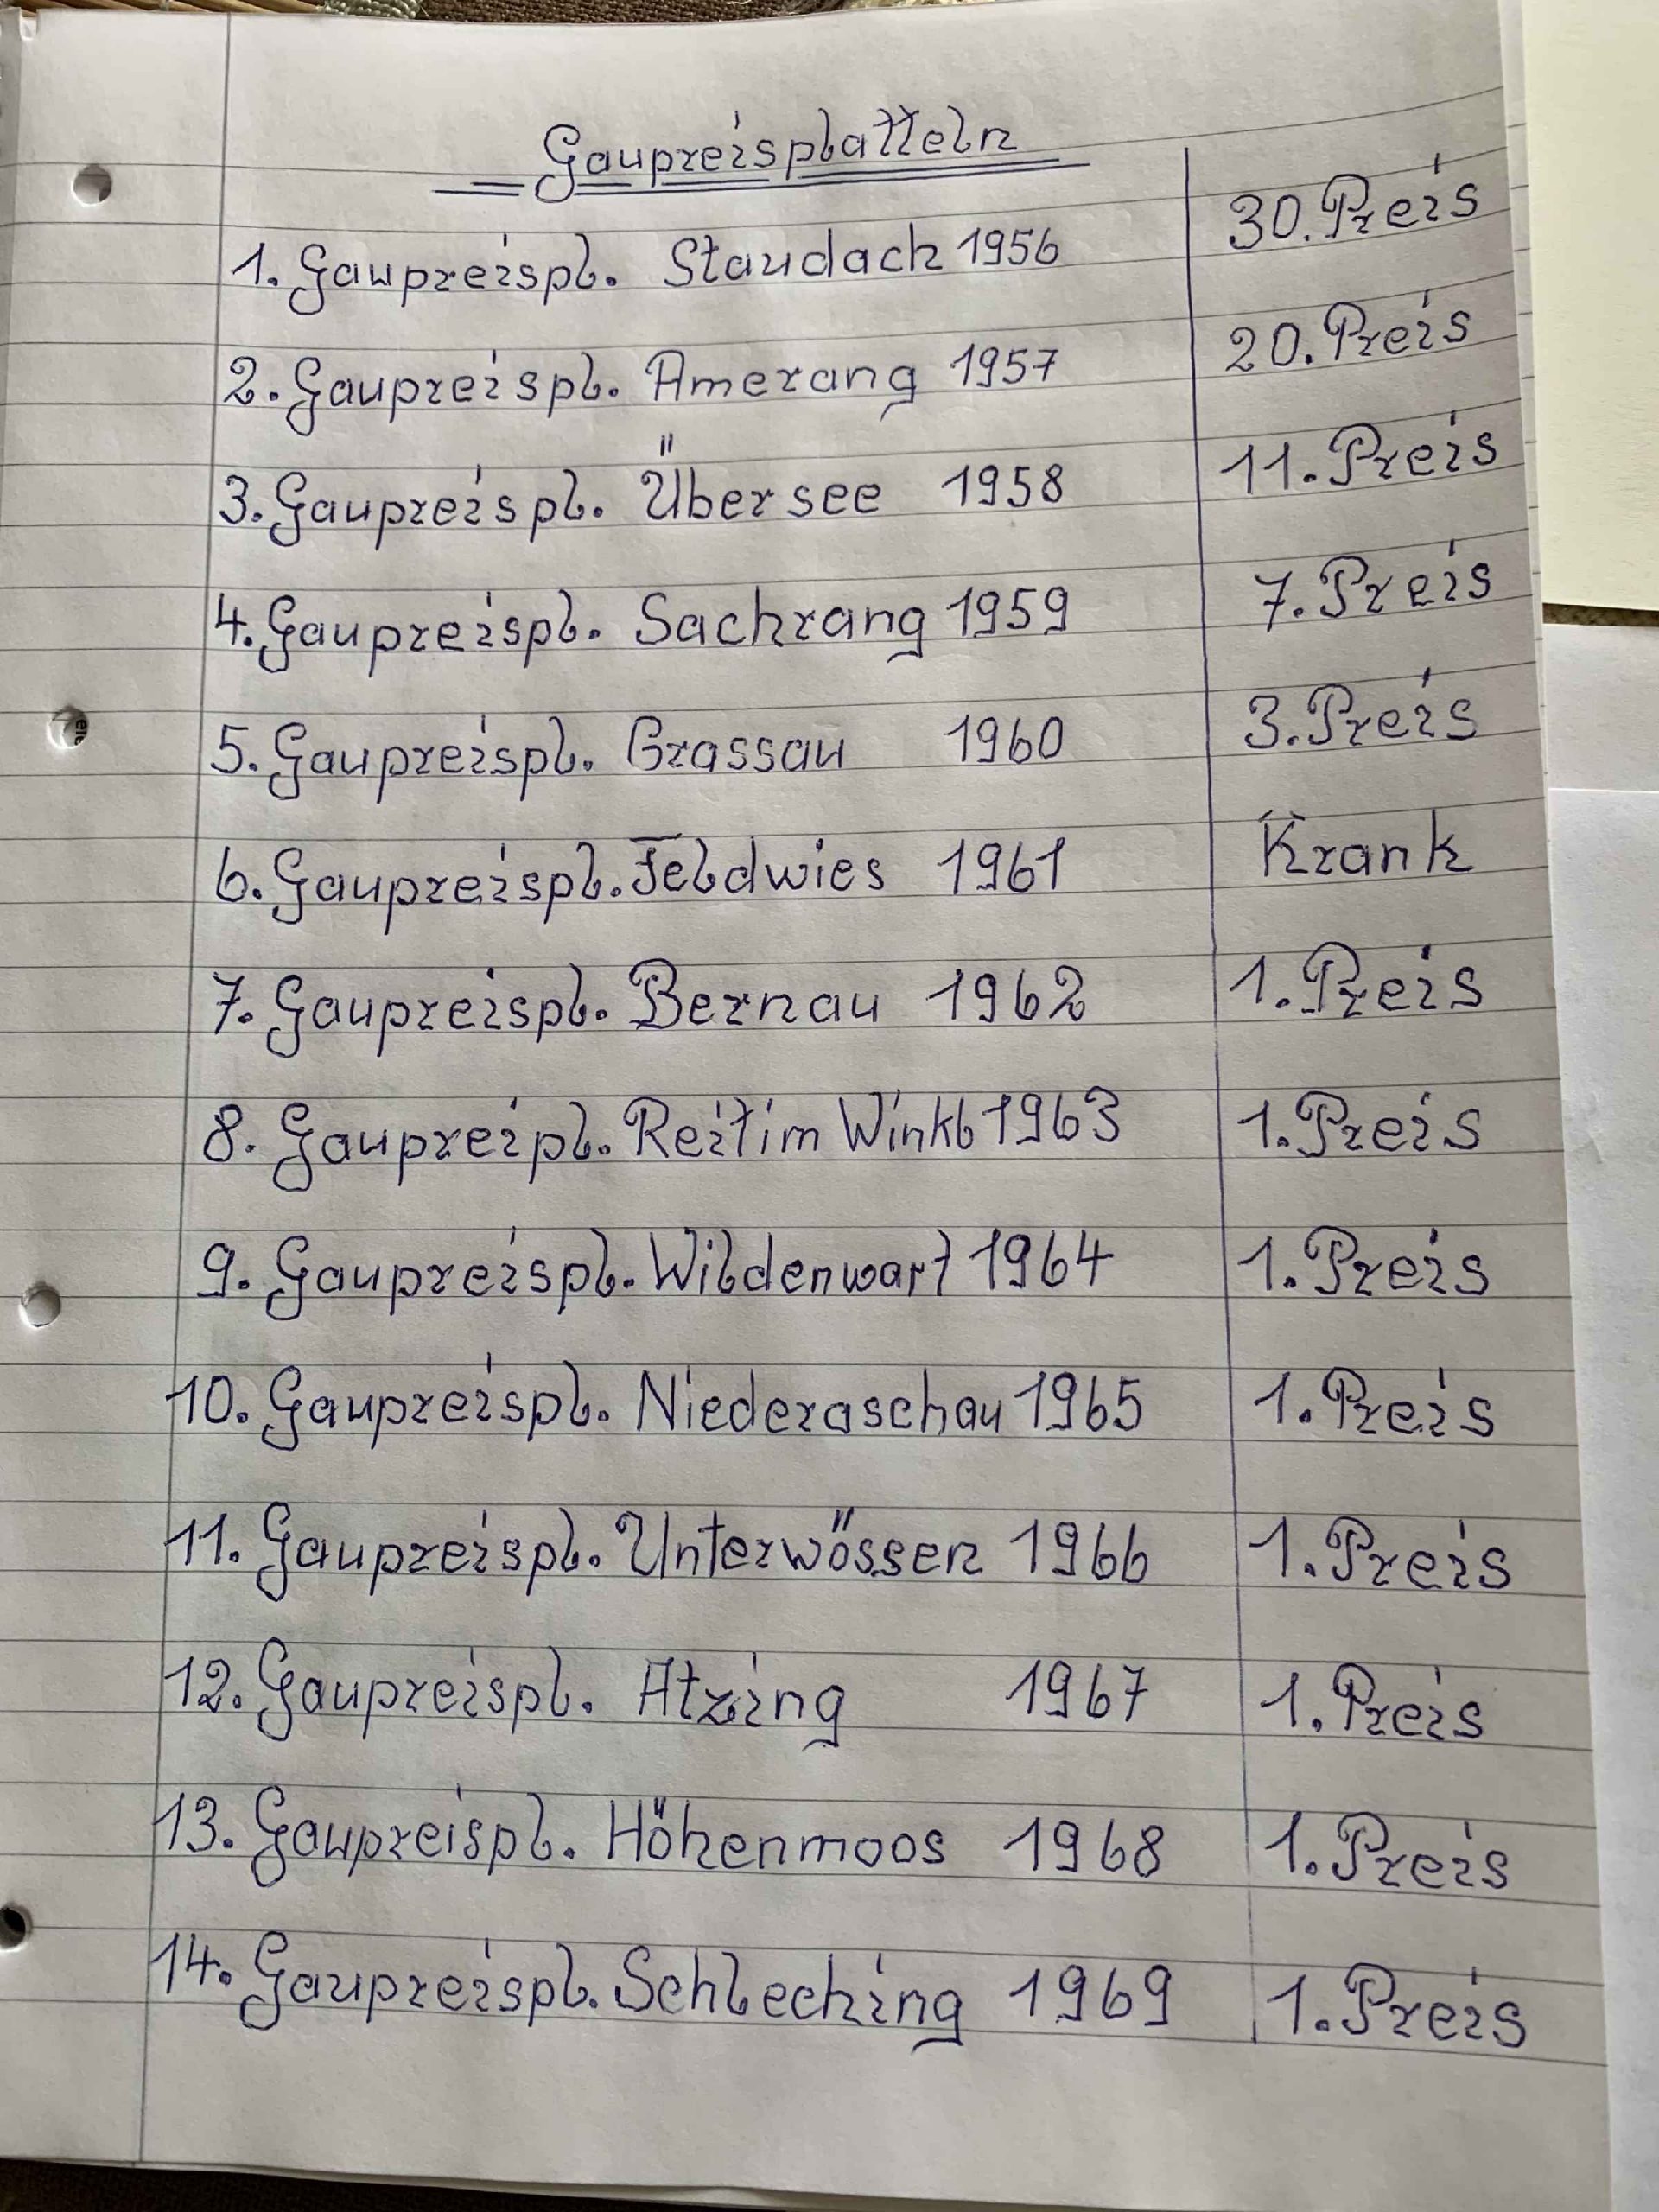 Gaupreisplatteln
1. Gaupreispl. Staudach 1956 30. Preis
2. Gaupreispl. Amerang 1957 20. Preis
3. Gaupreispl. Übersee 1958 11. Preis
4. Gaupreispl. Sachrang 1959 7. Preis
5. Gaupreispl. Grassau 1960 3. Preis
6. Gaupreispl. Feldwies 1961 Krank
7. Gaupreispl. Bernau 1962 1. Preis
8. Gaupreipl. Reit im Winkl 1963 1. Preis
9. Gaupreispl. Wildenwart 1964 1. Preis
10. Gaupreispl. Niederaschau 1965 1. Preis
11. Gaupreispl. Unterwössen 1966 1. Preis
12. Gaupreispl. Atzing 1967 1. Preis
13. Gaupreispl. Höhenmoos 1968 1. Preis
14. Gaupreispl. Schleching 1969 1. Preis